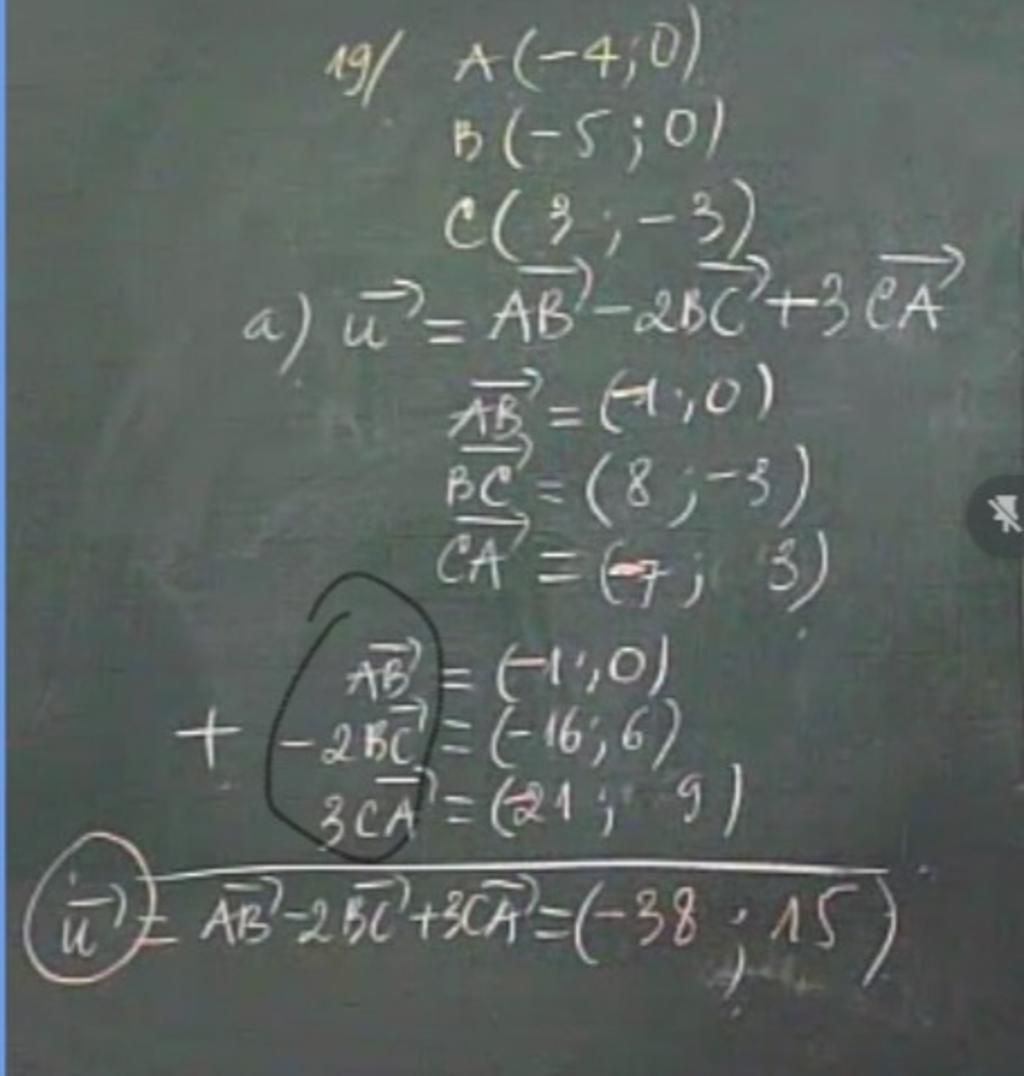 19/ A(-4;0)
B(-5;0)
C(3;-3)
a) u⃗ = AB⃗ - 2BC⃗ + 3CA⃗
AB⃗ = (-1;0)
BC⃗ = (8;-3)
CA⃗ = (-7; 3)
AB⃗ = (-1;0)
+ -2BC⃗ = (-16;6)
3CA⃗ = (-21; 9)
u⃗ = AB⃗ - 2BC⃗ + 3CA⃗ = (-38; 15)